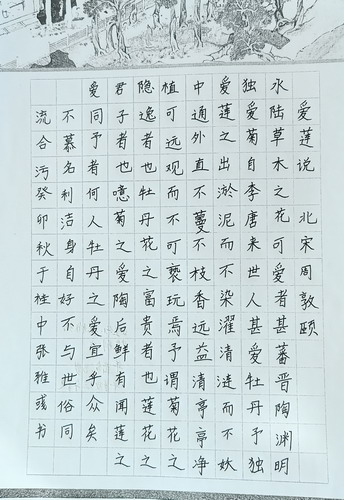 爱莲说 北宋周敦颐
水陆草木之花可爱者甚蕃晋陶渊明
独爱菊自李唐来世人甚爱牡丹予独
爱莲之出淤泥而不染濯清涟而不妖
中通外直不蔓不枝香远益清亭亭净
植可远观而不可亵玩焉予谓菊花之
隐逸者也牡丹花之富贵者也莲花之
君子者也噫菊之爱陶后鲜有闻莲之
爱同予者何人牡丹之爱宜乎众矣
不慕名利洁身自好不与世俗同
流合污癸卯秋于桂中张雅彧书